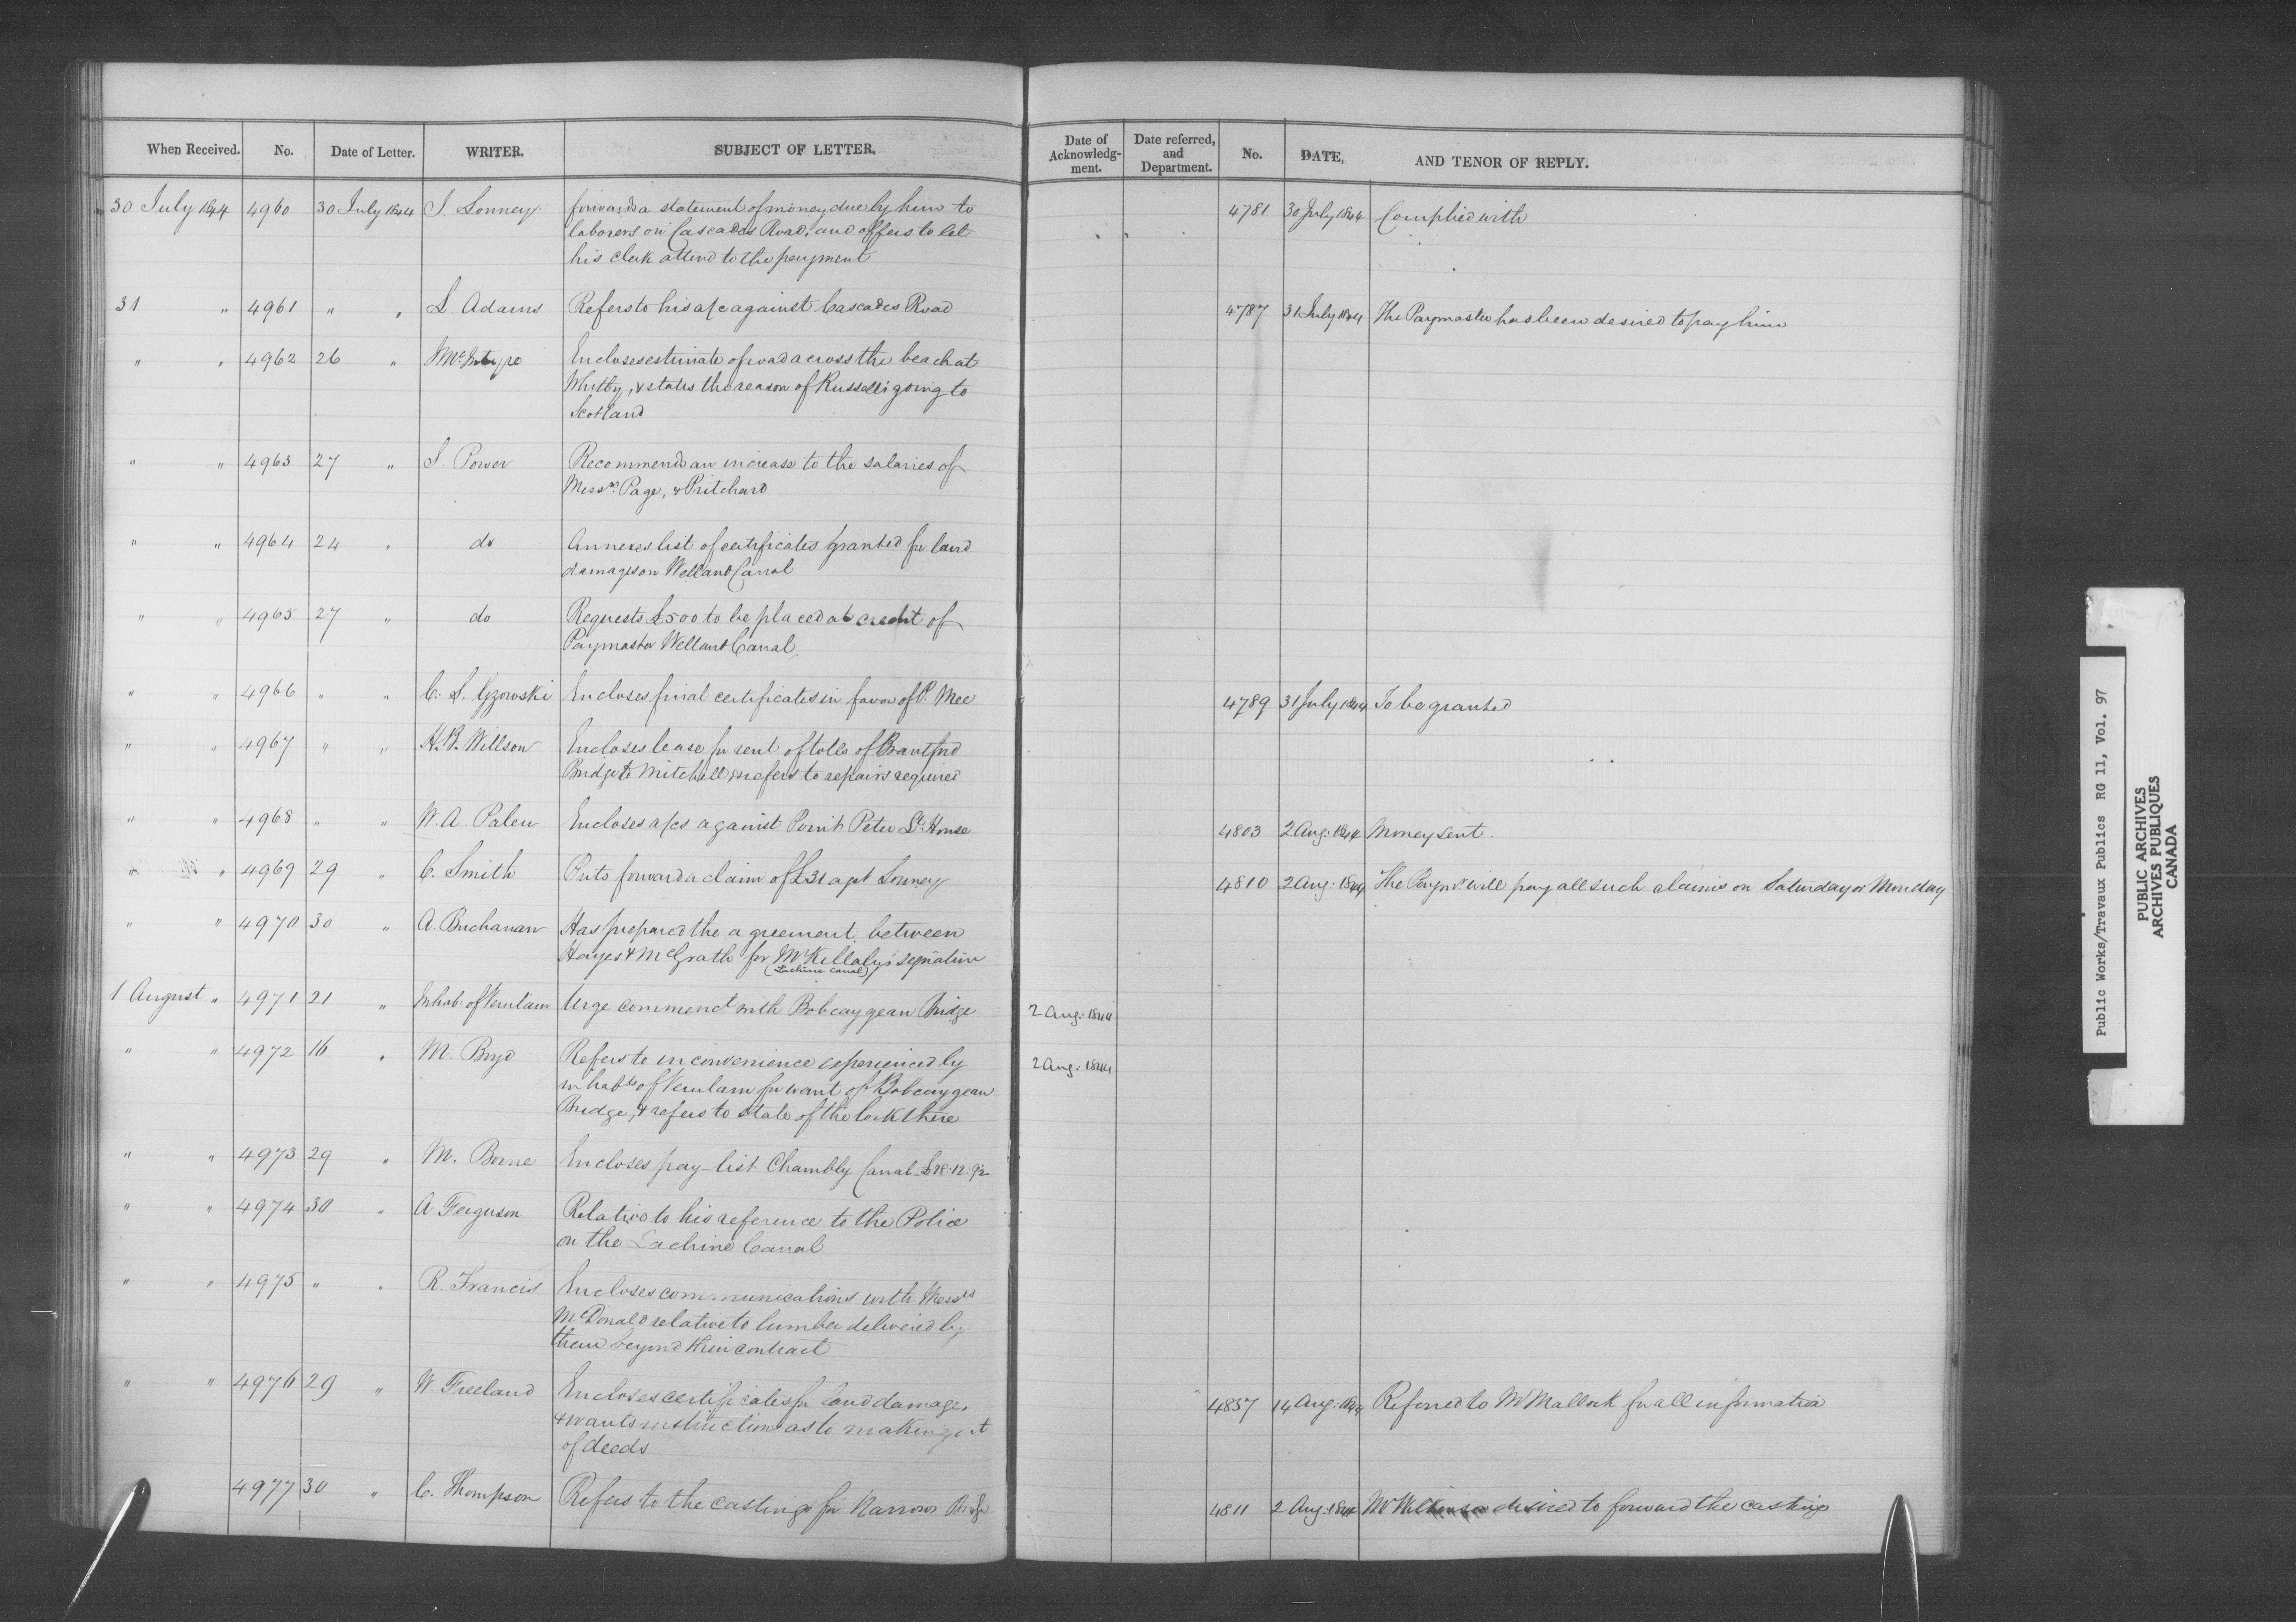 When Received. No. Date of Letter. WRITER. SUBJECT OF LETTER. Date of Acknowledg-ment. Date referred, and Department. No. DATE, AND TENOR OF REPLY.
30 July 1844 4960 30 July 1844 forwards a statement of money due by him to 4781 30 July 1844 Complied with
laborers on Cascades Road, and offers to let
his clerk attend to the payment
31 " 4961 " " L. Adams Refers to his a/c against Cascades Road 4787 31 July 1844 The Paymaster has been desired to pay him
" " 4962 26 " McIntyre Encloses estimate of road across the beach at
Whitby, & states the reason of Russell's going to
Scotland
" " 4963 27 " S. Power Recommends an increase to the salaries of
Messrs. Page, & Pritchard
" " 4964 24 " do Annexes list of certificates granted for land
damages on Welland Canal
" " 4965 27 " do Requests £500 to be placed at credit of
Paymaster Welland Canal.
" " 4966 " " C. S. Gzowski Encloses final certificates in favor of P. Mee 4789 31 July 1844 To be granted
" " 4967 " " H. B. Willson Encloses lease for rent of tolls of Brantford
Bridge to Mitchell & refers to repairs required
" " 4968 " " N. A. Palen Encloses a/cs against Point Peter Lt. House 4803 2 Aug: 1844 Money sent.
" " 4969 29 " C. Smith Puts forward a claim of £31 agt 4810 2 Aug: 1844 The Paymr will pay all such claims on Saturday or Monday
" " 4970 30 " A. Buchanan Has prepared the agreement between
Hayes & McGrath for Mr Killaly's signature
(Lachine Canal)
1 August " 4971 21 " Inhab: of Verulam Urge commenct with Bobcaygean Bridge 2 Aug: 1844
" " 4972 16 " M. Boyd Refers to inconvenience experienced by 2 Aug: 1844
inhabts of Verulam for want of Bobcaygean
Bridge, & refers to state of the lock there
" " 4973 29 " M. Borne Encloses pay-list Chambly Canal £28.12.9½
" " 4974 30 " A. Ferguson Relative to his reference to the Police
on the Lachine Canal
" " 4975 " " R. Francis Encloses communications with Messrs
McDonald relative to lumber delivered by
them beyond their contract
" " 4976 29 " W. Freeland Encloses certificates for land damage, 4857 14 Aug: 1844 Referred to Mr Malloch for all information
& wants instructions as to making out
of deeds
4977 30 " C. Thompson Refers to the castings for Narrows Bridge 4811 2 Aug: 1844 Mr Wilkinson desired to forward the castings
Public Works/Travaux Publics RG 11, Vol. 97
PUBLIC ARCHIVES
ARCHIVES PUBLIQUES
CANADA